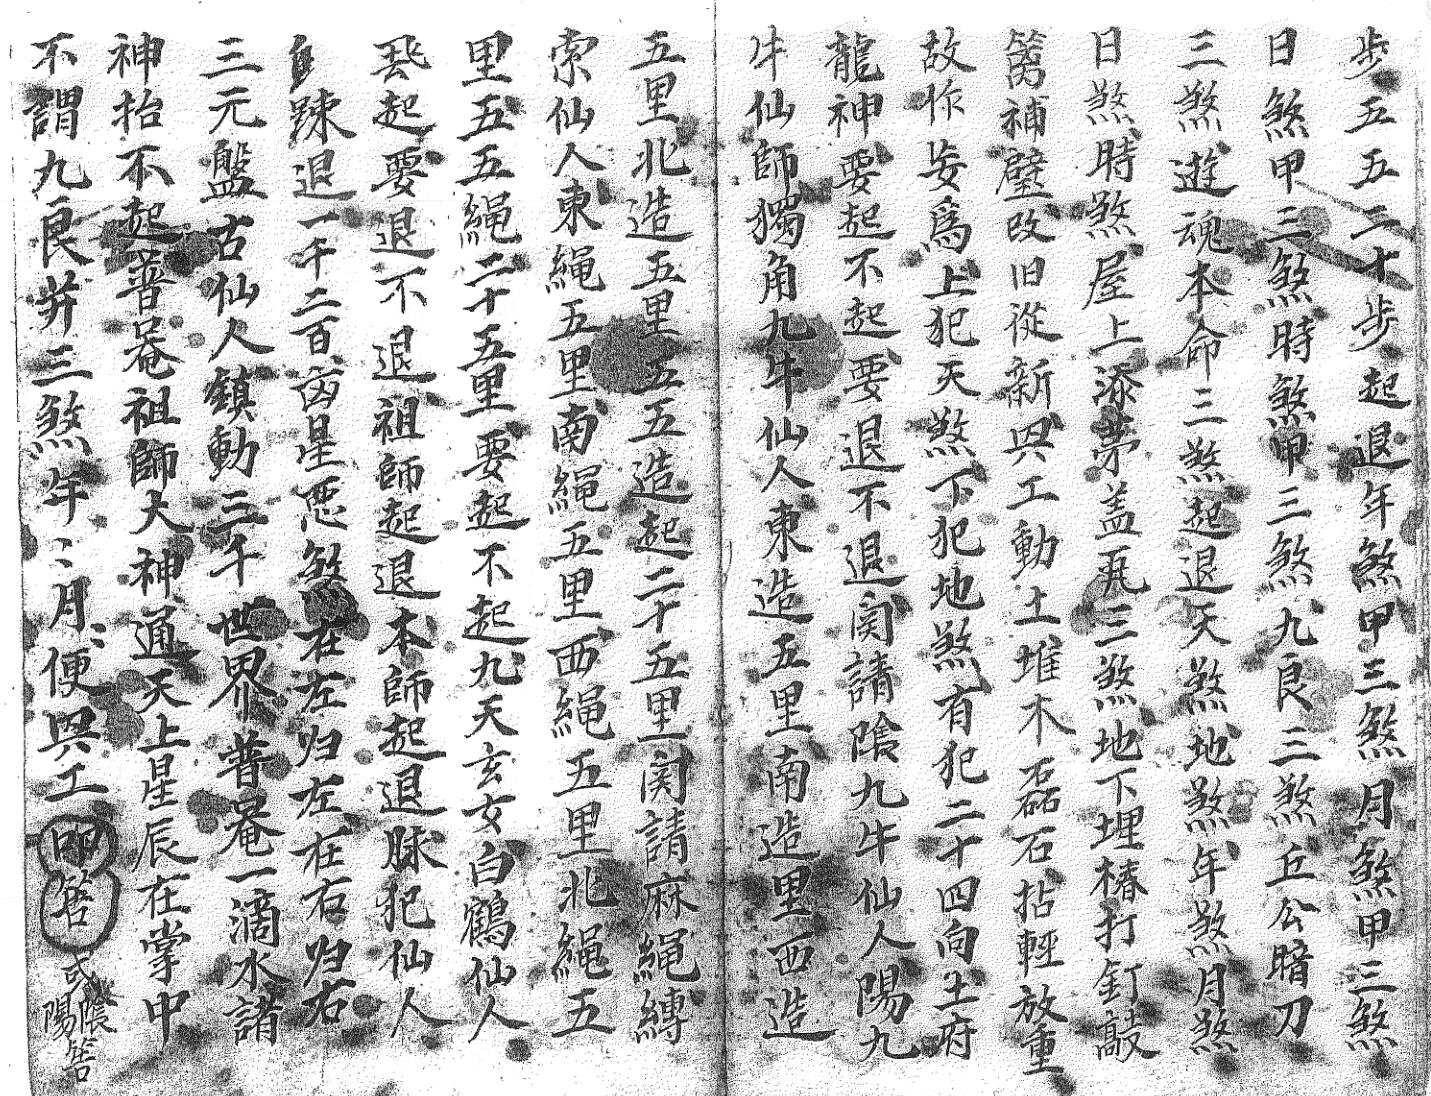 步五五二十步起退年煞甲三煞月煞甲三煞
日煞甲三煞時煞甲三煞九良三煞丘公暗刀
三煞遊魂本命三煞起退天煞地煞年煞月煞
日煞時煞屋上添茅盖瓦三煞地下埋樁打釘敲
籬補壁改旧從新兴工動土堆木磊石拈輕放重
故作妄爲上犯天煞下犯地煞有犯二十四向土府
龍神要起不起要退不退関請陰九牛仙人陽九
牛仙師獨角九牛仙人東造五里南造里西造
五里北造五里五五造起二十五里関請麻繩縳
索仙人東繩五里南繩五里西繩五里北繩五
里五五繩二十五里要起不起九天玄女白鶴仙人
起要退不退祖師起退本師起退脉犯仙人
踈退一千二百凶星悪煞在左归左在右归右
三元盤古仙人鎮動三千世界普菴一滴水諸
神抬不起普菴祖師大神通天上星辰在掌中
不謂九良并三煞年〻月〻便兴工叩筶或陰陽筶